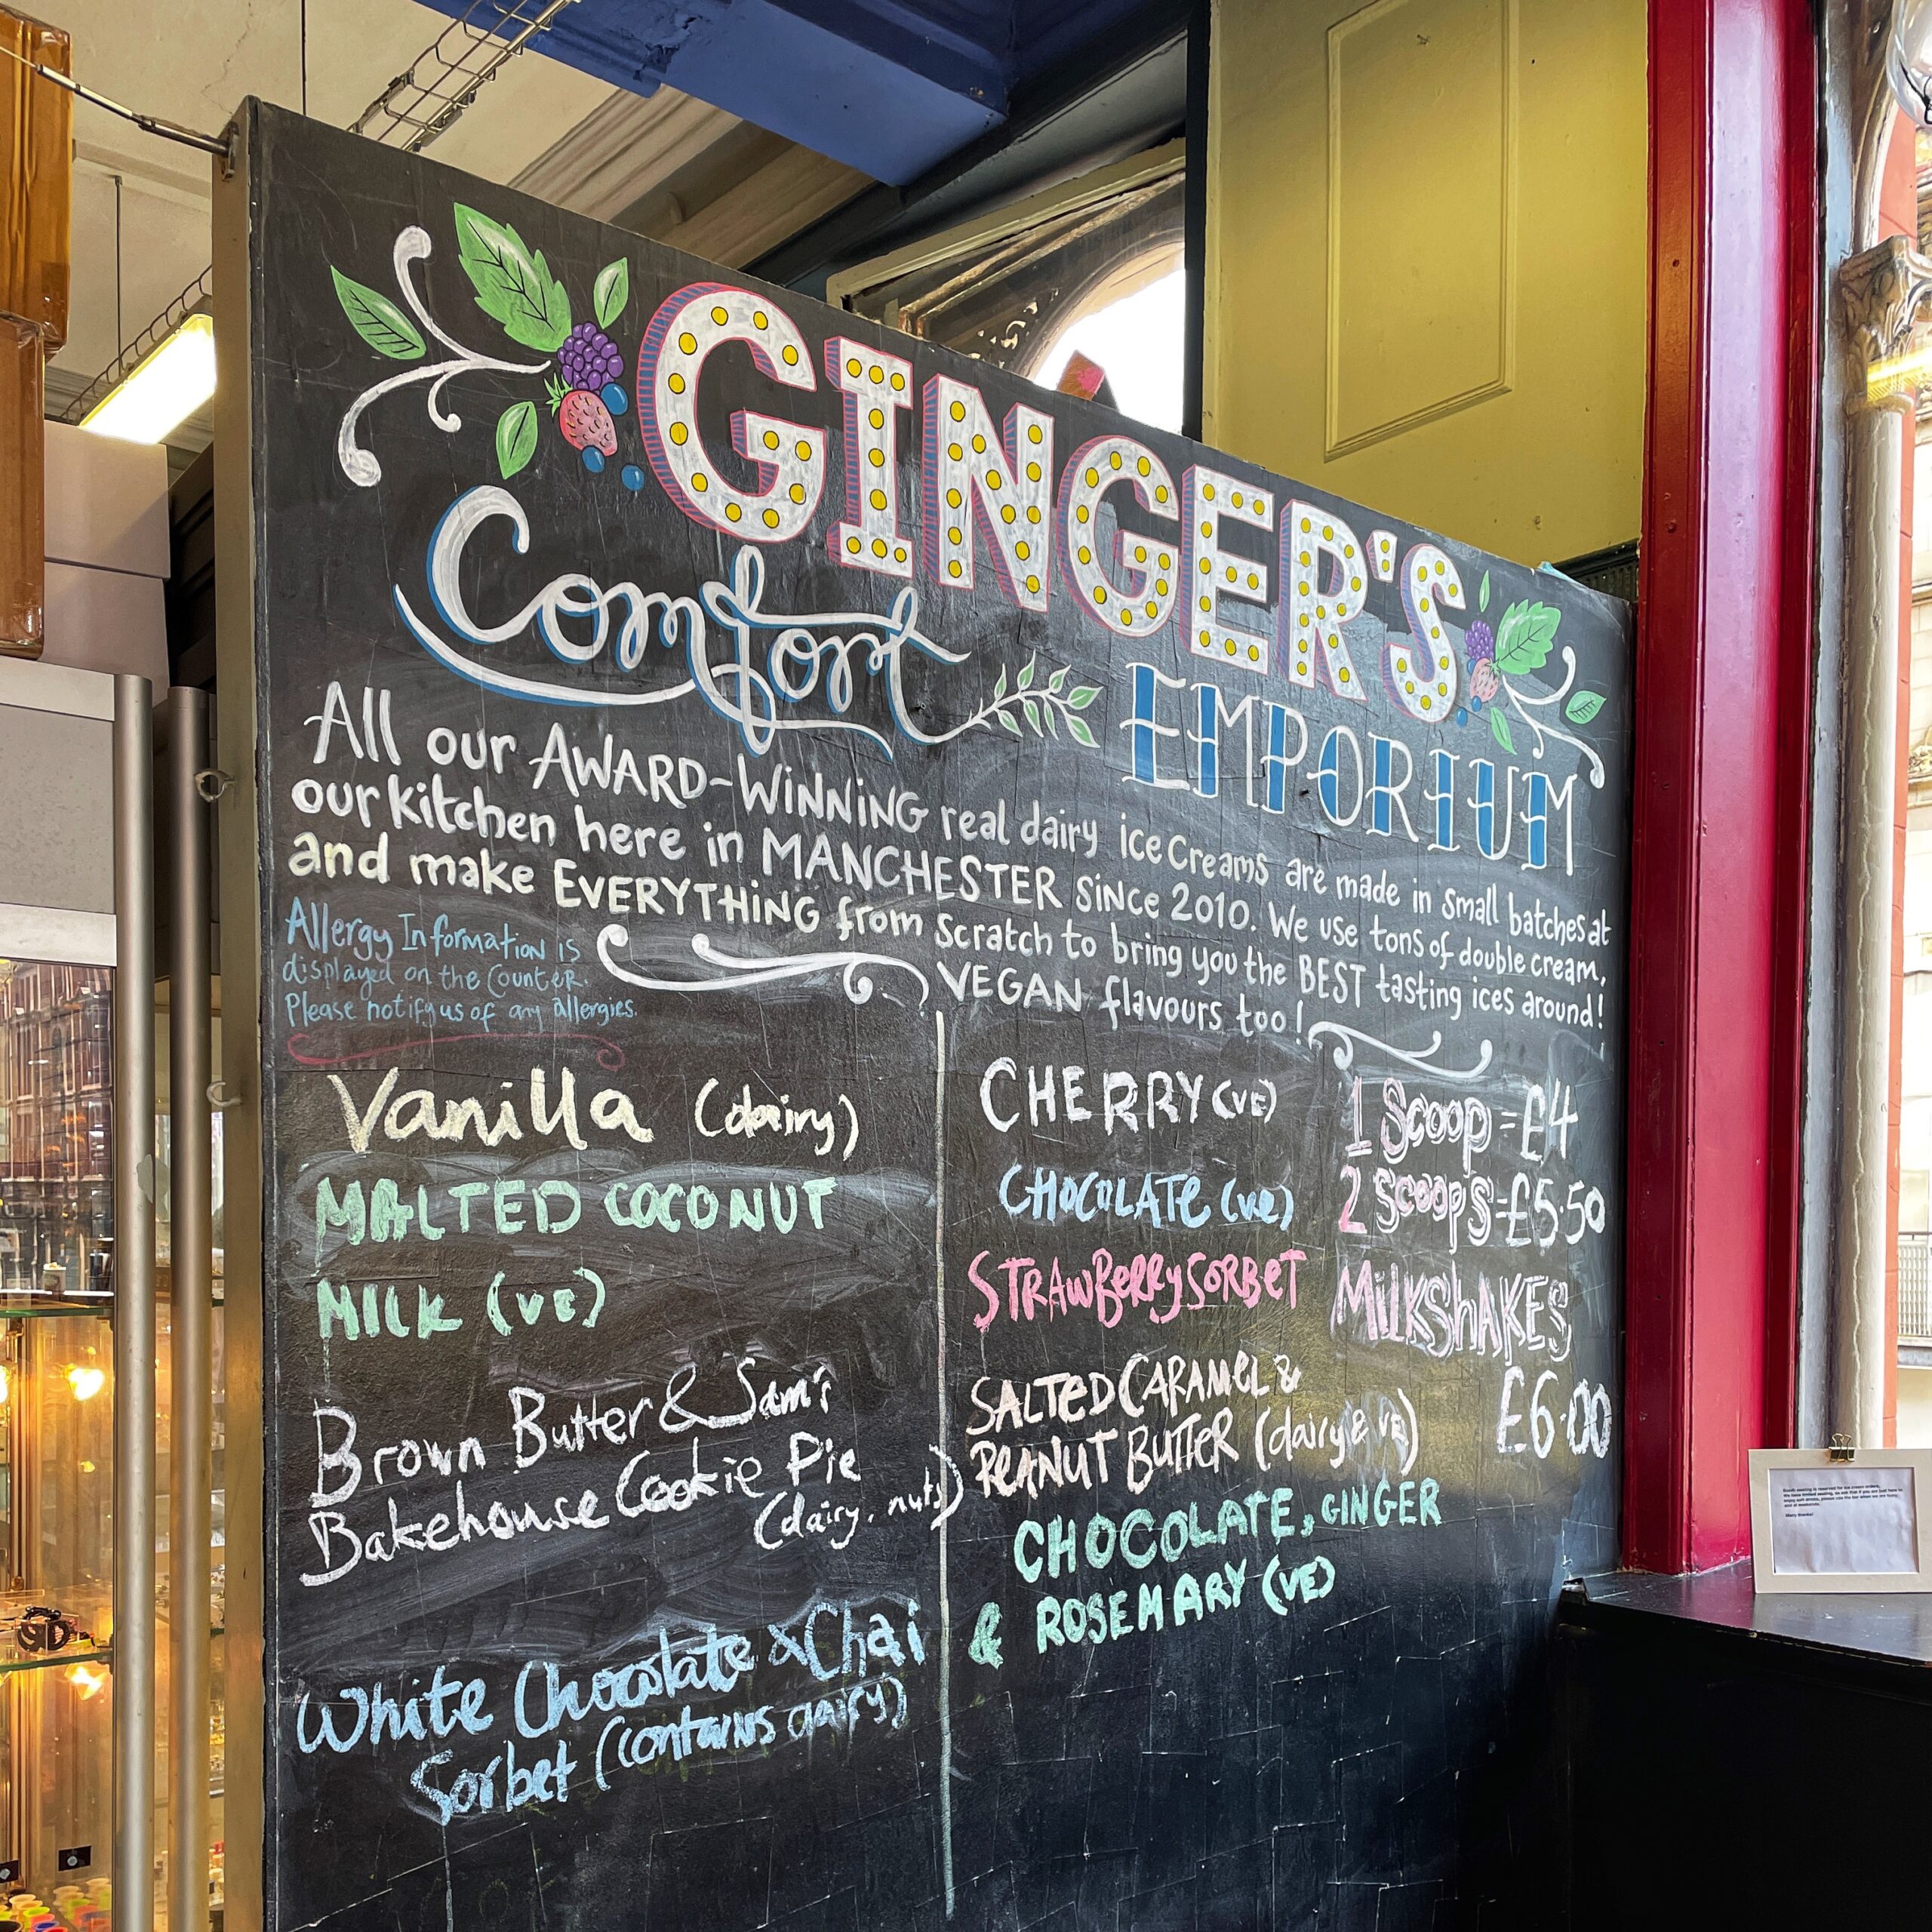 GINGER'S
Comfort
EMPORIUM
All our AWARD-WINNING real dairy ice Creams are made in small batches at
our kitchen here in MANCHESTER since 2010. We use tons of double cream,
and make EVERYTHING from scratch to bring you the BEST tasting ices around!
VEGAN flavours too!
Allergy Information is
displayed on the counter.
Please notify us of any allergies.
Vanilla (dairy)
MALTED COCONUT
MILK (ve)
Brown Butter & Sam's
Bakehouse Cookie Pie
(dairy, nuts)
White Chocolate & Chai
Sorbet (contains dairy)
CHERRY (VE)
CHOCOLATE (ve)
STRAWBERRY SORBET
SALTED CARAMEL &
PEANUT BUTTER (dairy & VE)
CHOCOLATE, GINGER
& ROSEMARY (VE)
1 Scoop = £4
2 Scoops = £5.50
MILKSHAKES
£6.00